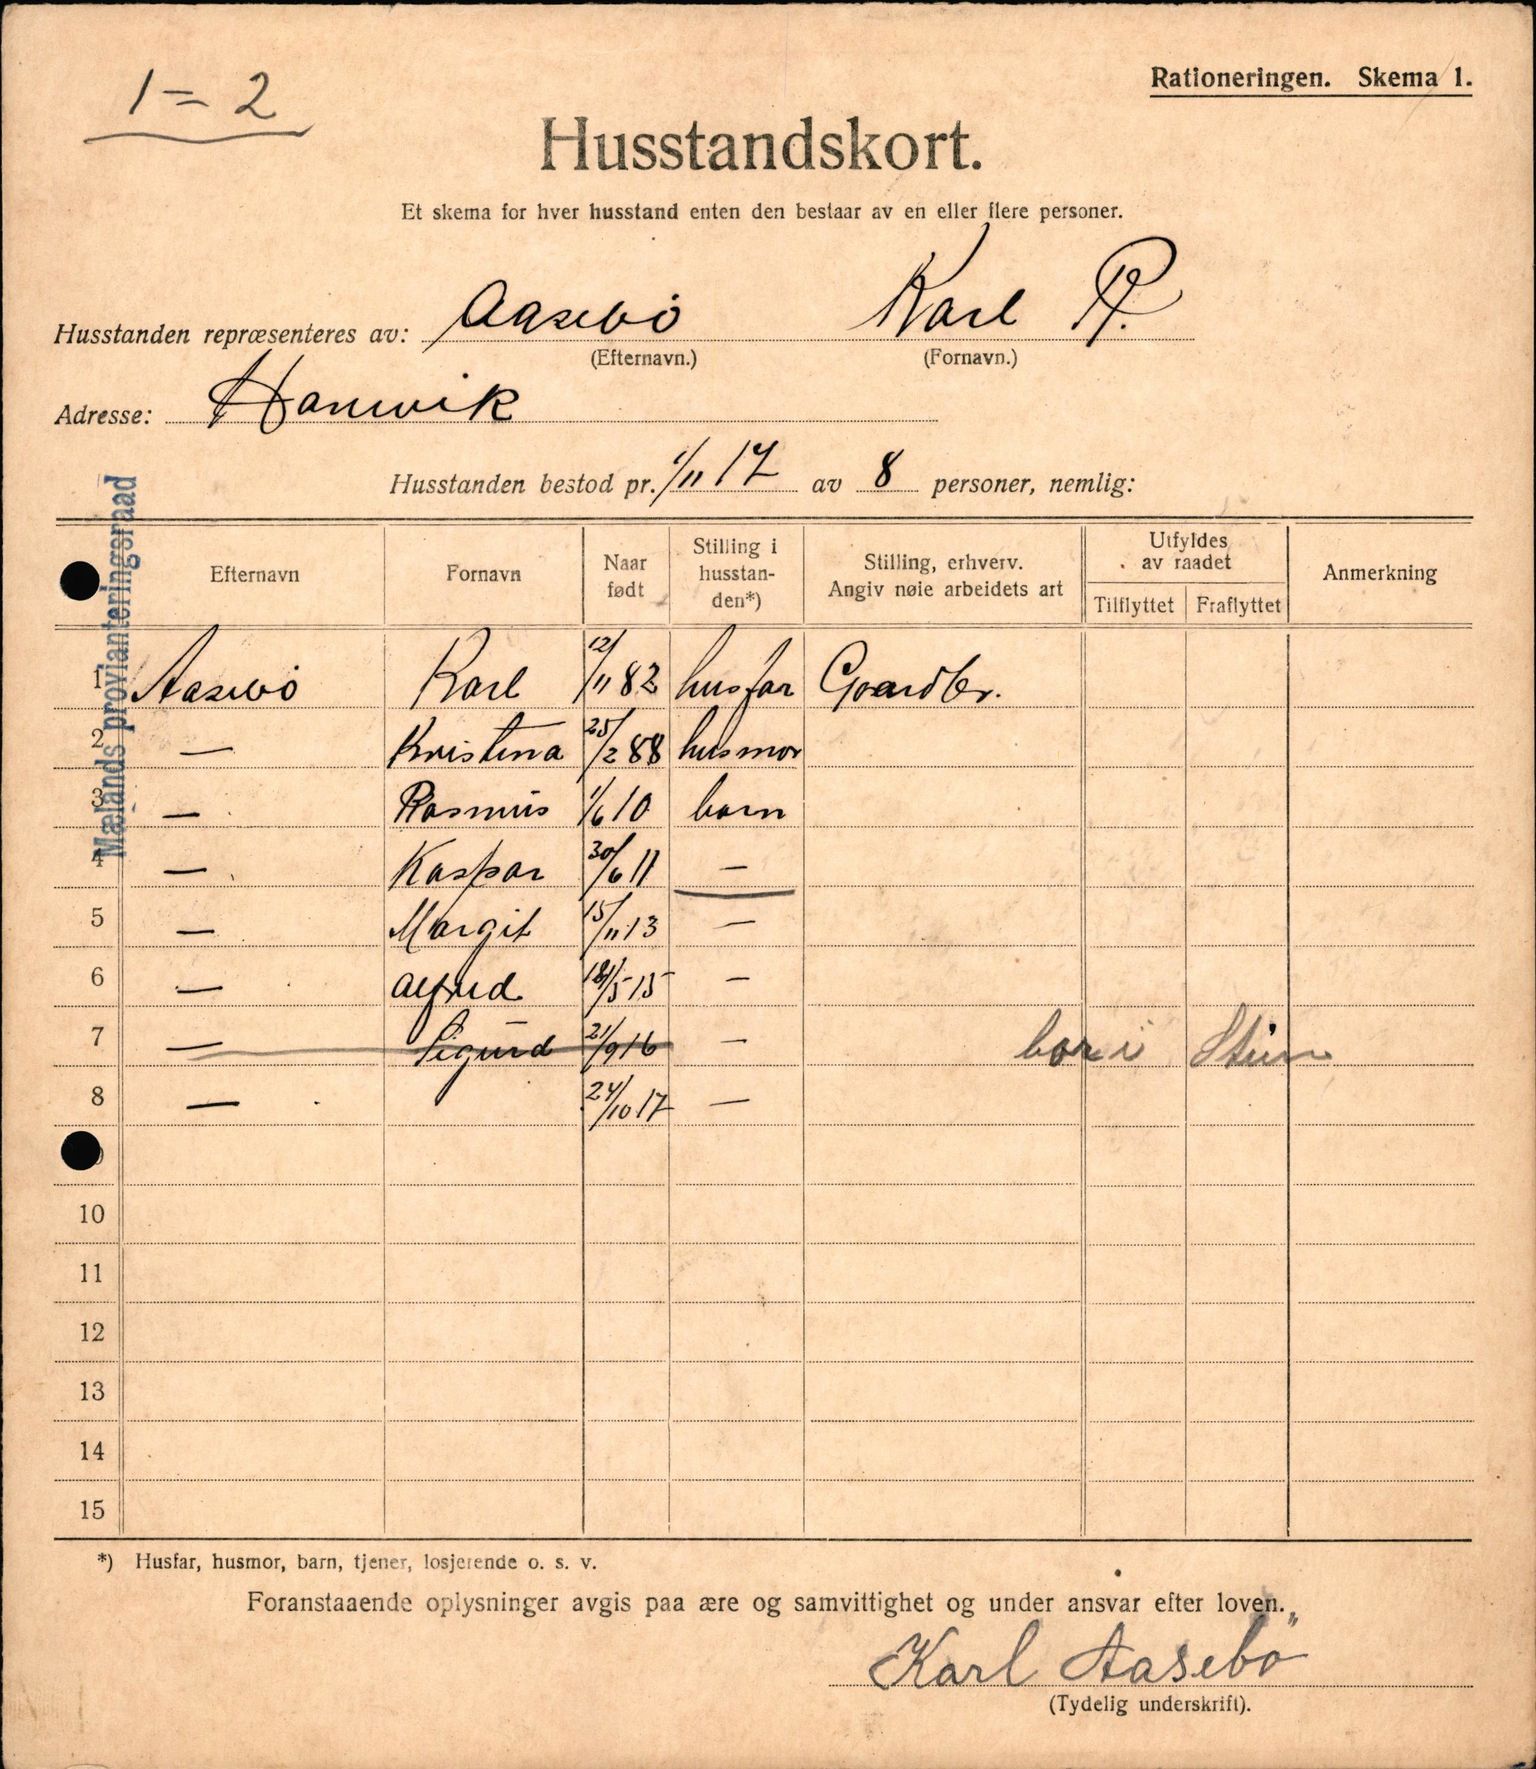 1 = 2
Rationeringen. Skema 1.
Husstandskort.
Et skema for hver husstand enten den bestaar av en eller flere personer.
Husstanden repræsenteres av: Aasebö Karl R.
(Efternavn.) (Fornavn.)
Adresse: Hamvik
Husstanden bestod pr. 1/11 17 av 8 personer, nemlig:
Mælands provianteringsraad
Efternavn Fornavn Naar født Stilling i husstan-den*) Stilling, erhverv. Angiv nøie arbeidets art Utfyldes av raadet Tilflyttet Fraflyttet Anmerkning
1 Aasebö Karl 12/11 82 husfar Gaardbr.
2 — Kristina 25/2 88 husmor
3 — Rasmus 1/6 10 barn
4 — Kaspar 30/6 11 —
5 — Margit 15/11 13 —
6 — Alfred 18/5 15 —
7 — Sigurd 21/9 16 — bor i
8 — 24/10 17 —
10
11
12
13
14
15
*) Husfar, husmor, barn, tjener, losjerende o. s. v.
Foranstaaende oplysninger avgis paa ære og samvittighet og under ansvar efter loven.
Karl Aasebö
(Tydelig underskrift).